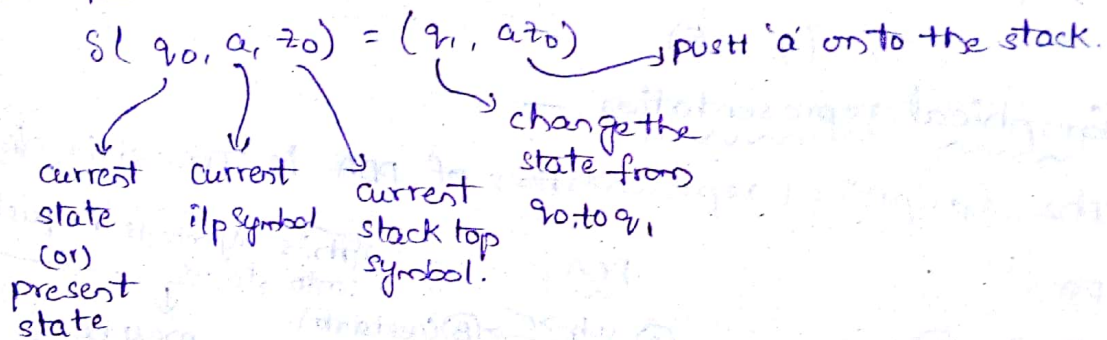 δ( q0, a, z0) = (q1, az0) → push 'a' on to the stack.
change the
state from
q0 to q1
current
state
(or)
present
state
current
i/p symbol
current
stack top
symbol.